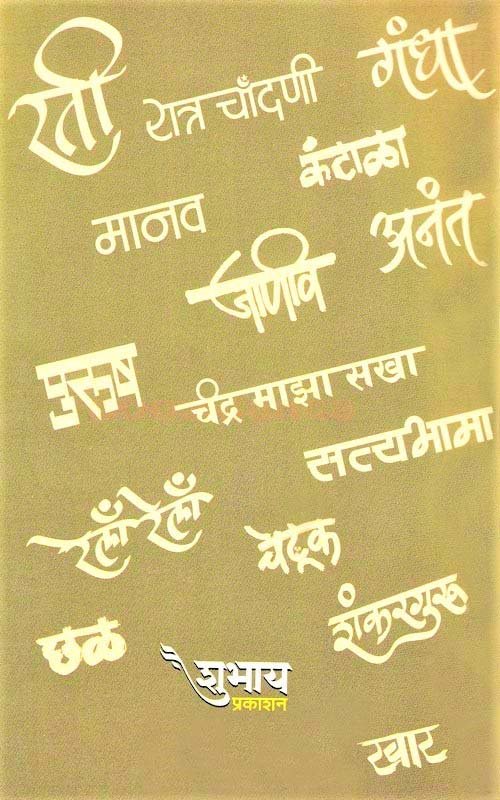 रती
रात्र चाँदणी
गंधा
कंटाळा
मानव
अनंत
जाणीव
पुरुष
चंद्र माझा सखा
सत्यभामा
रेलाँ रेलाँ
बेडूक
शंकरगुरू
छळ
शुभाय
प्रकाशन
खार